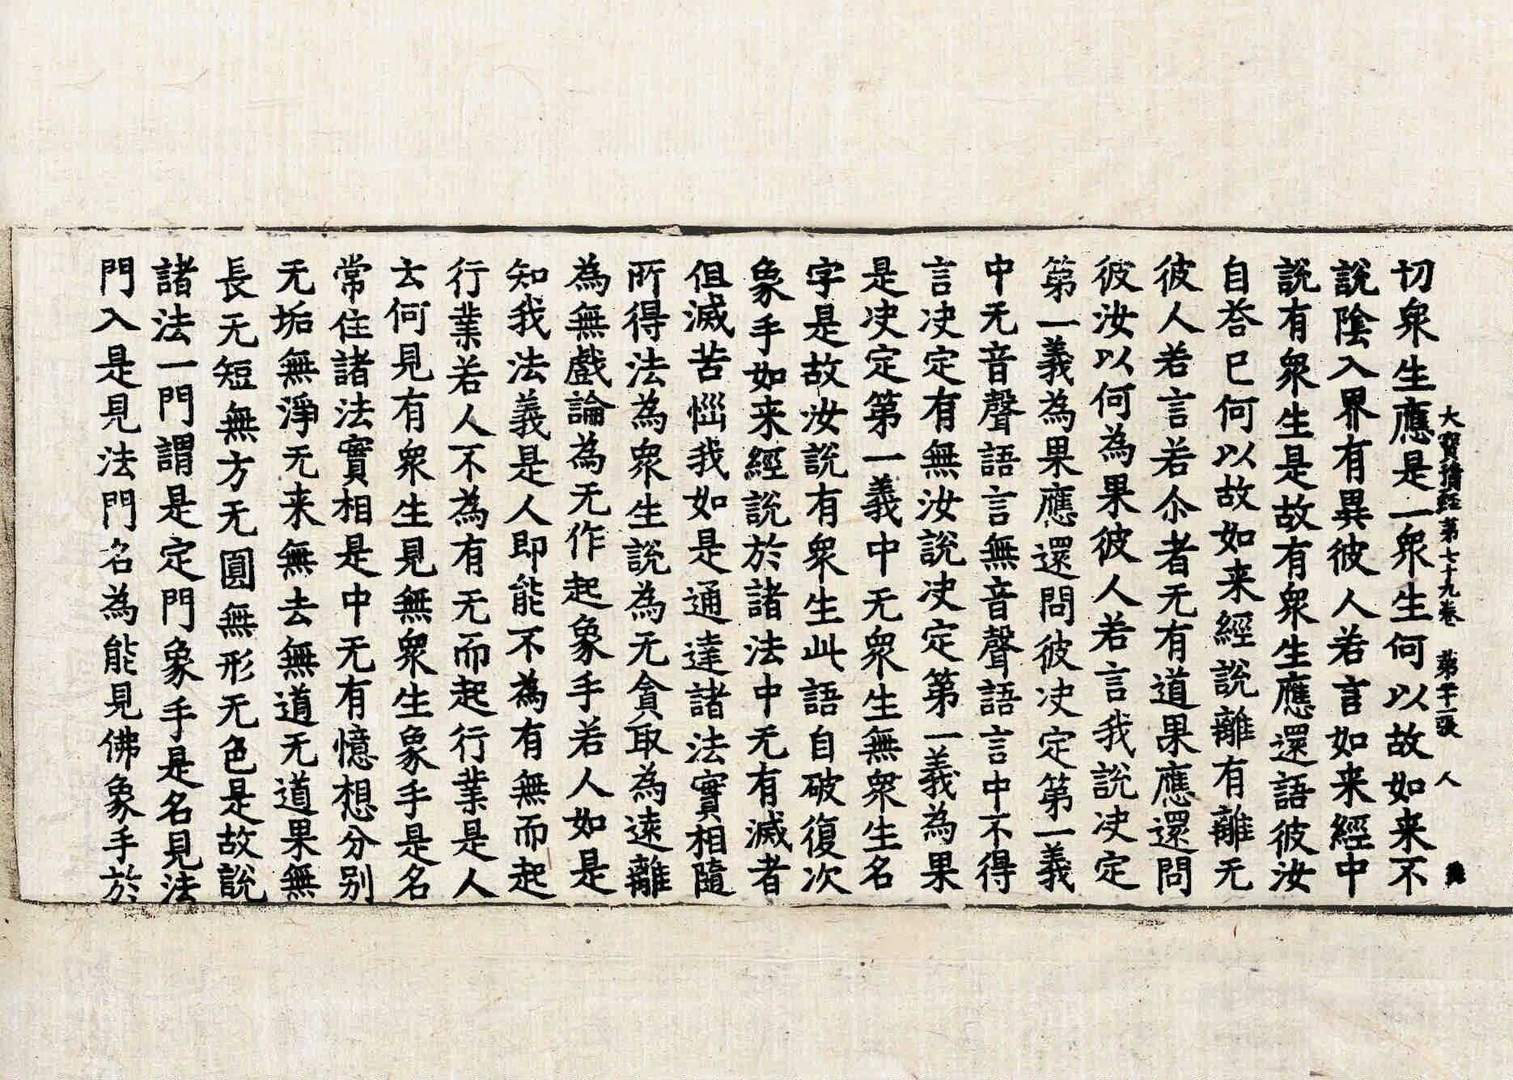 大寶積經第七十九卷　第二十一張　人
切衆生應是一衆生何以故如来不
說隂入界有異彼人若言如来經中
說有衆生是故有衆生應還語彼汝
自荅已何以故如来經說離有離无
彼人若言若尒者无有道果應還問
彼汝以何為果彼人若言我說决定
第一義為果應還問彼决定第一義
中无音聲語言無音聲語言中不得
言决定有無汝說决定第一義為果
是决定第一義中无衆生無衆生名
字是故汝說有衆生此語自破復次
象手如来經說於諸法中无有滅者
但滅苦惱我如是通達諸法實相隨
所得法為衆生說為无貪取為遠離
為無戲論為无作起象手若人如是
知我法義是人即能不為有無而起
行業若人不為有无而起行業是人
去何見有衆生見無衆生象手是名
常住諸法實相是中无有憶想分別
无垢無淨无来無去無道无道果無
長无短無方无圓無形无色是故說
諸法一門謂是定門象手是名見法
門入是見法門名為能見佛象手於